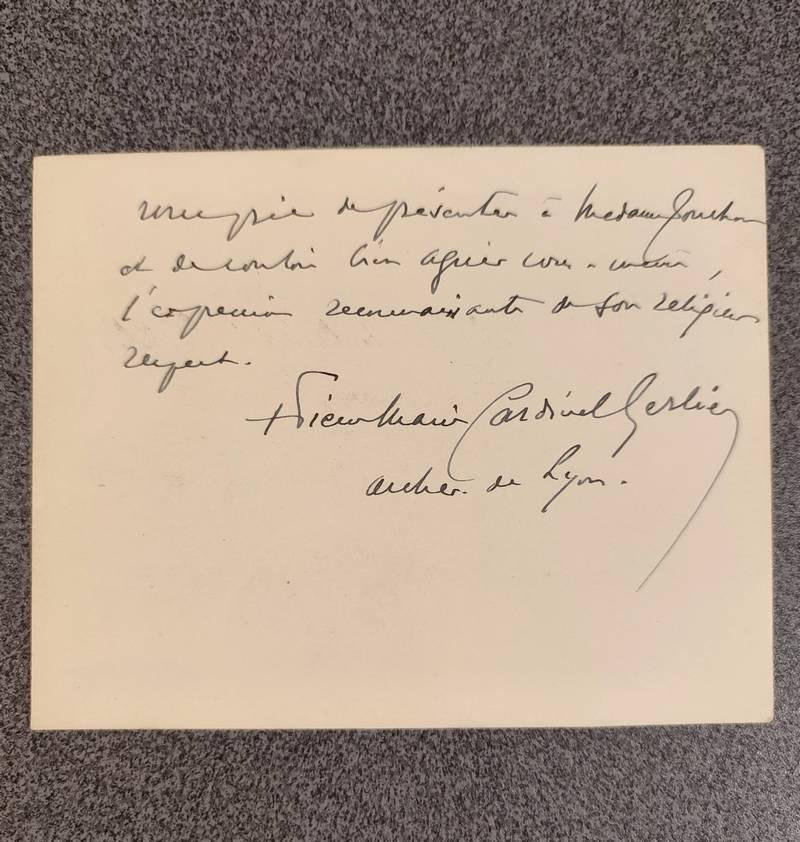 vous prie de présenter à Madame
et de vouloir bien agréer vous-même,
l'expression reconnaissante de son religieux
respect.
+ Pierre Marie Cardinal Gerlier
archev. de Lyon.